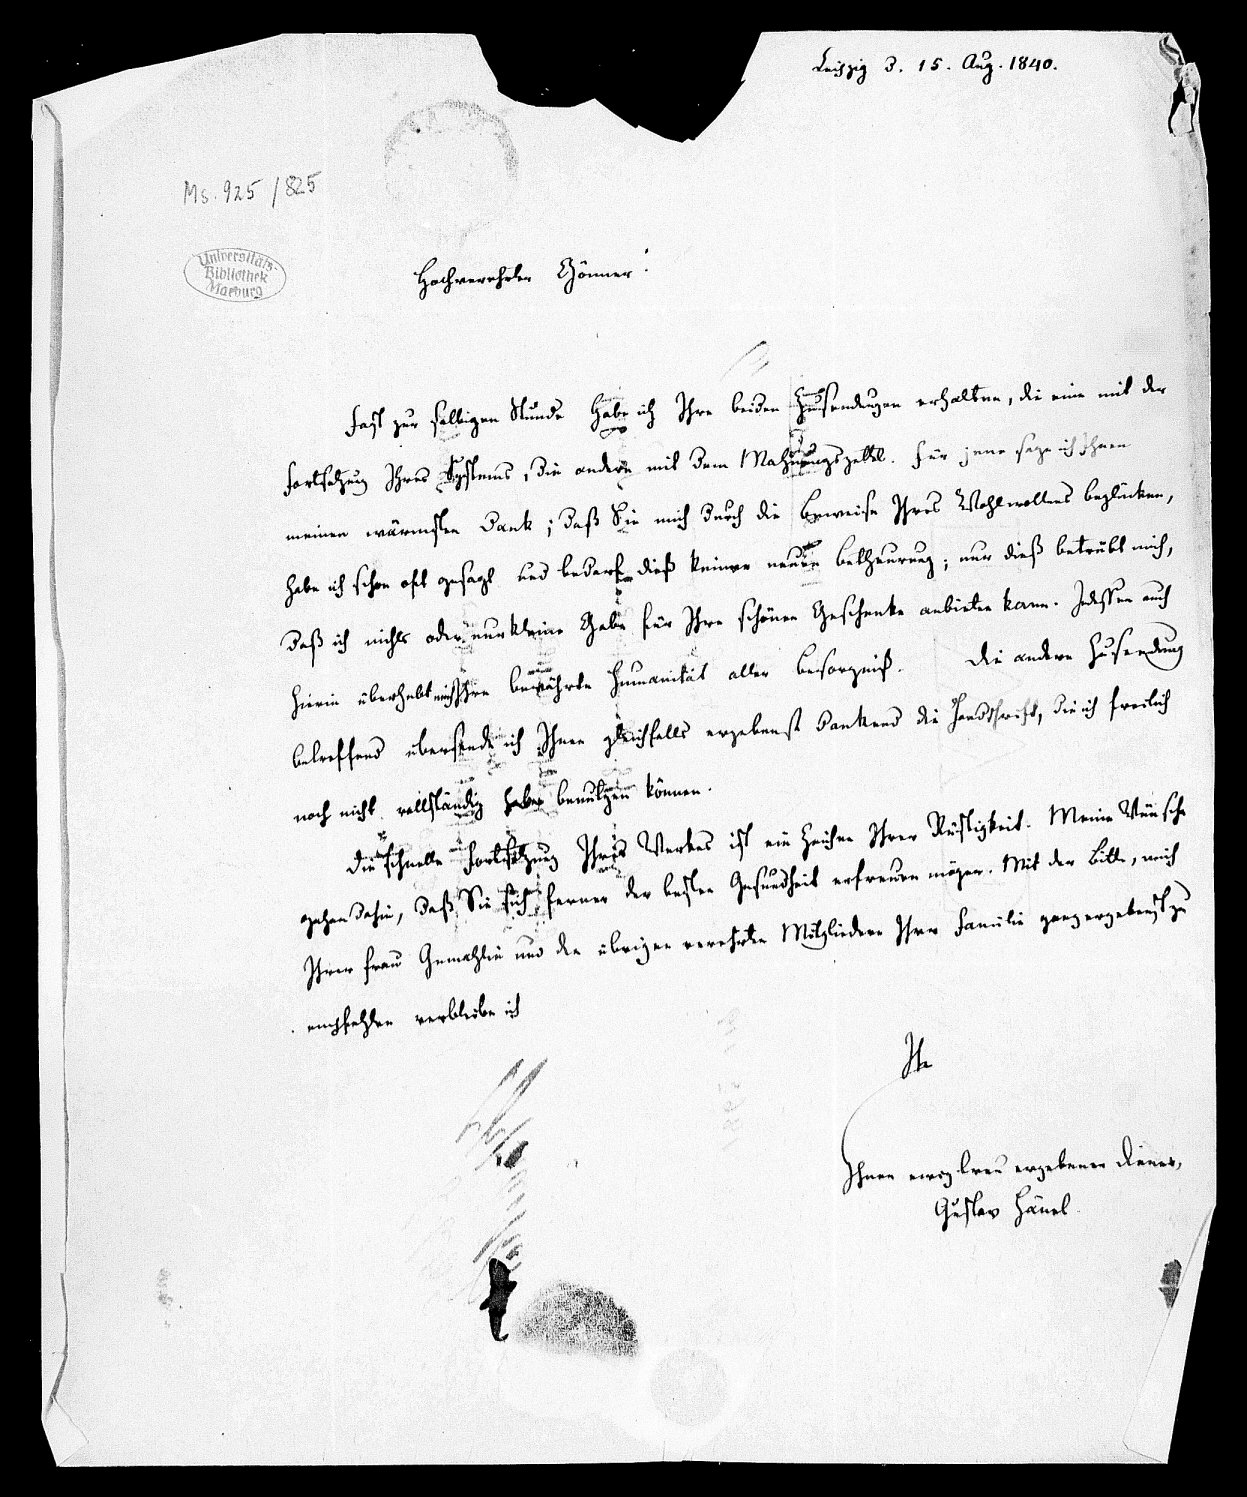 Leipzig d. 15. Aug. 1840.
Ms. 925/825
Universitäts-
Bibliothek
Marburg
Hochverehrter Gönner!
Fast zur selbigen Stunde habe ich Ihre beiden Zusendungen erhalten, die eine mit der
Fortsetzung Ihres Systems, die andere mit dem Mahnungszettel. Für jene sage ich Ihnen
meinen wärmsten Dank; daß Sie mich durch die Beweise Ihres Wohlwollens beglücken,
habe ich schon oft gesagt und bedarf dieß keiner neuen Betheurung; nur dieß betrübt mich,
daß ich nichts oder nur kleine Gabe für Ihre schönen Geschenke anbieten kann. Indessen auch
hierin überhebt mich Ihre bewährte Humanität aller Besorgniß. Die andere Zusendung
betreffend übersende ich Ihnen gleichfalls ergebenst dankend die Handschrift, die ich freilich
noch nicht vollständig habe benutzen können.
Die schnelle Fortsetzung Ihres Werkes ist ein Zeichen Ihrer Rüstigkeit. Meine Wünsche
gehen dahin, daß Sie sich ferner der besten Gesundheit erfreuen mögen. Mit der Bitte, mich
Ihrer Frau Gemahlin und den übrigen verehrten Mitgliedern Ihrer Familie ganz ergebenst zu
empfehlen verbleibe ich
Ihr
Ihnen ewig treu ergebener Diener,
Gustav Hänel.